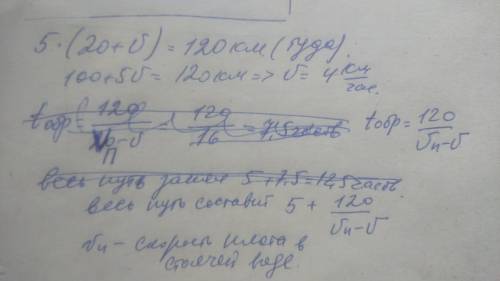 5 · (20 + υ) = 120 км (туда).
100 + 5υ = 120 км => υ = 4 км/час.
tобр = 120/(υп - υ) = 120/16 = 7,5 часть tобр = 120/(υп - υ)
весь путь занял 5 + 7,5 = 12,5 часть
весь путь составит 5 + 120/(υп - υ)
υп - скорость плота в
стоячей воде.